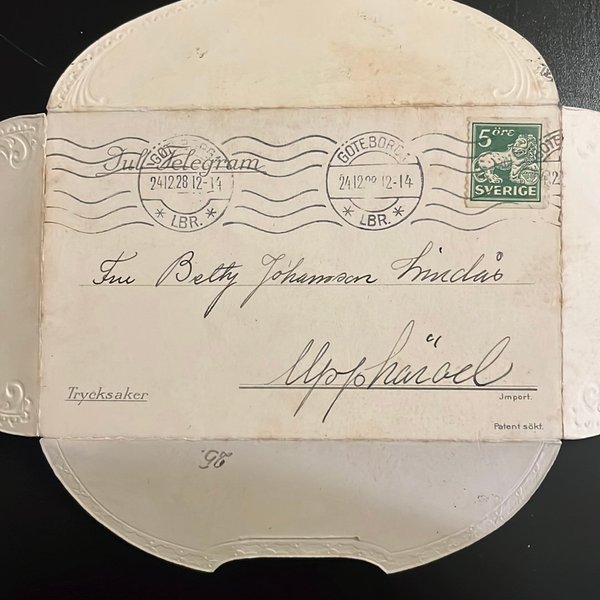 Jul-Telegram
GÖTEBORG
24.12.28.12-14
* LBR. *
GÖTEBORG
24.12.28.12-14
* LBR. *
5 öre
SVERIGE
Fru Betty Johanson Lindås
Upphärad
Trycksaker
Import.
Patent sökt.
25